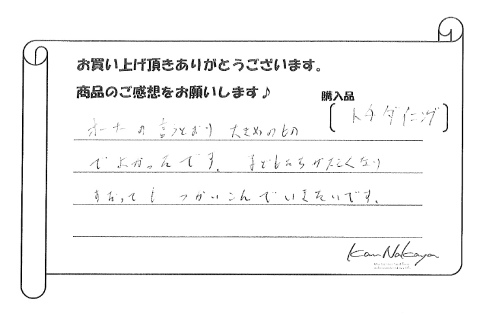 お買い上げ頂きありがとうございます。
商品のご感想をお願いします♪
購入品
[トチダイニング]
オーナーの言うとおり 大きめのもの
でよかったです。 子どもたちが大きくなり
すだっても つかいこんでいきたいです。
Kan Nakaya